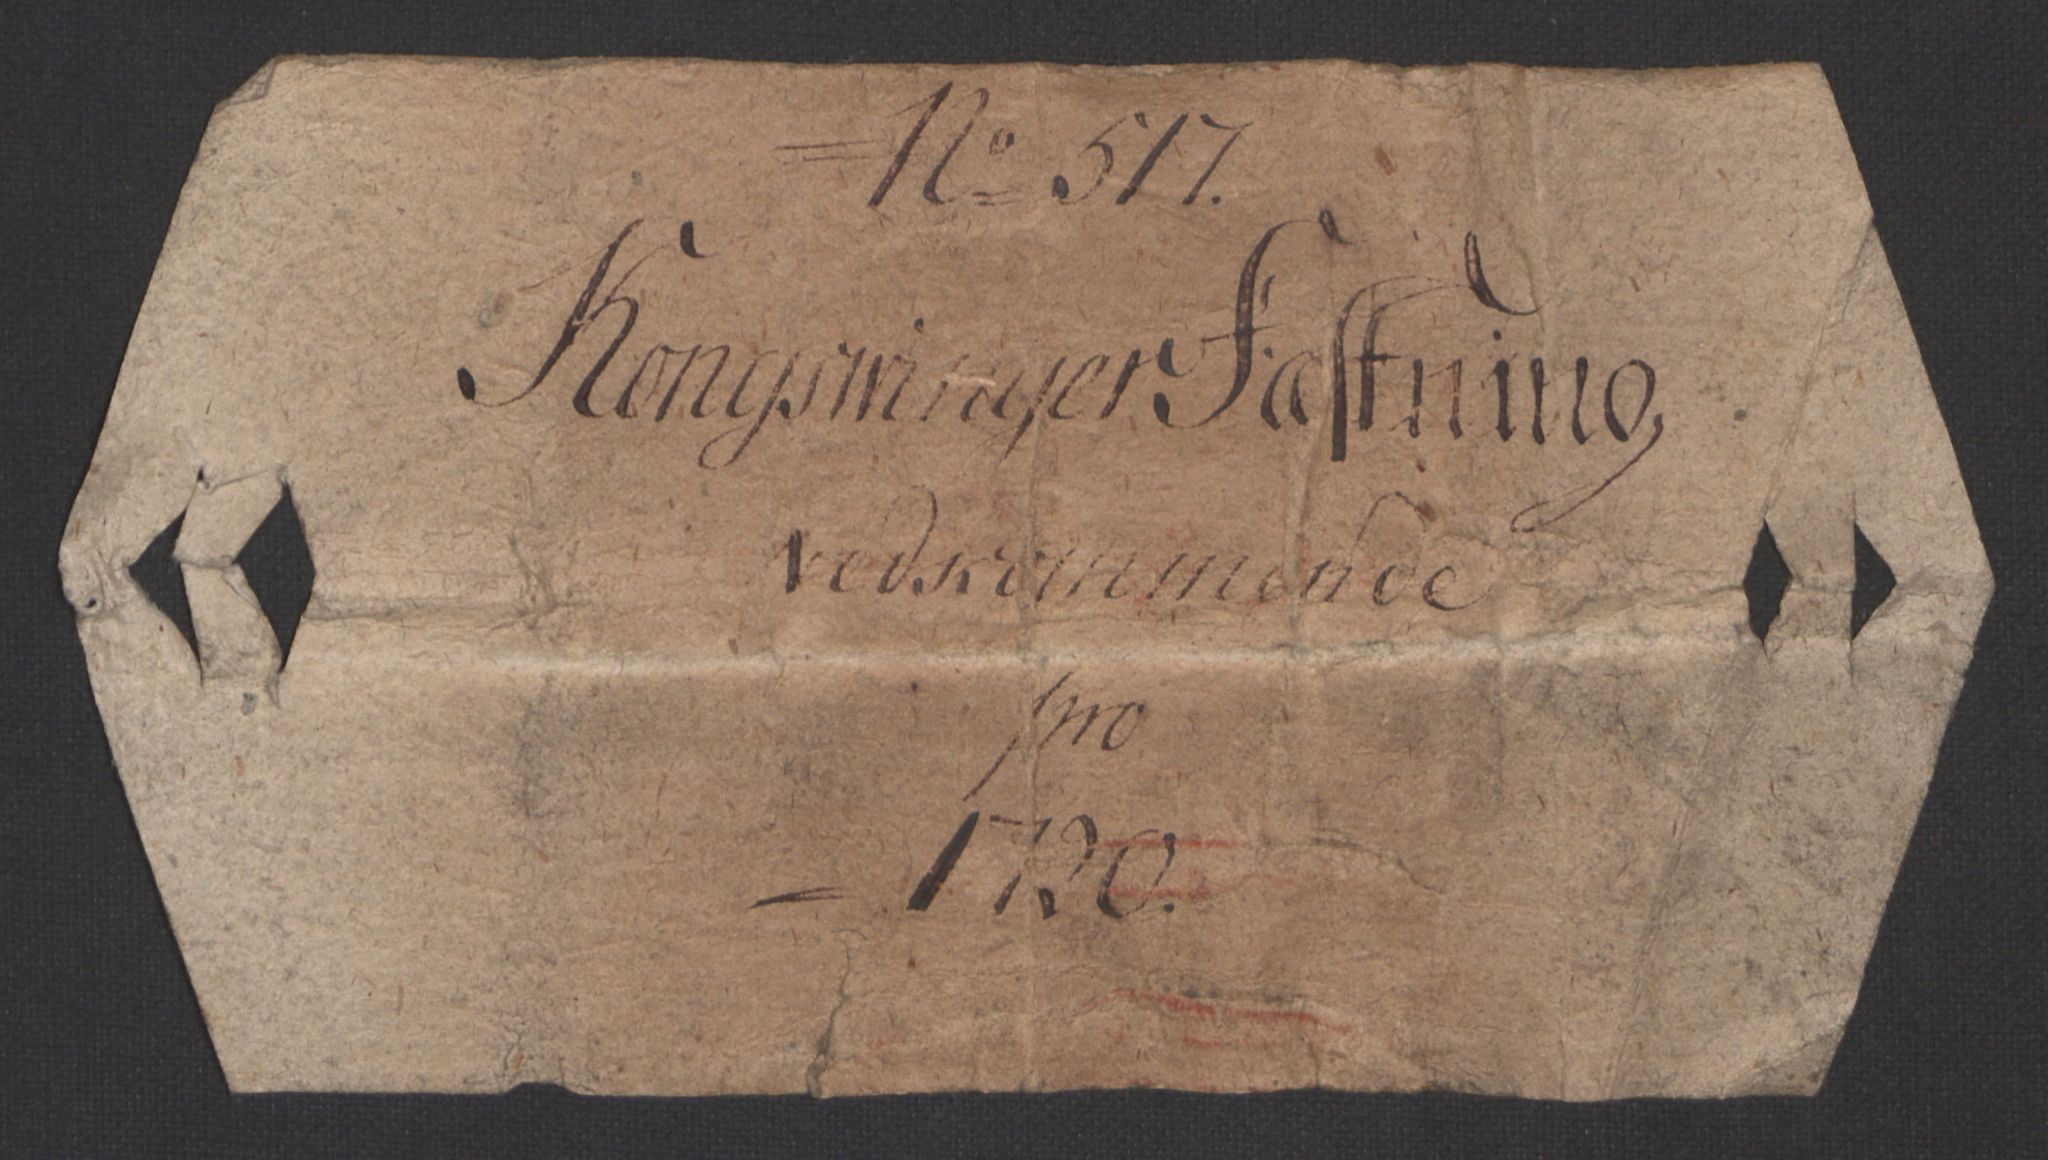 No 517.
Kongswinger Fæstning
vedkommende
pro
1790.